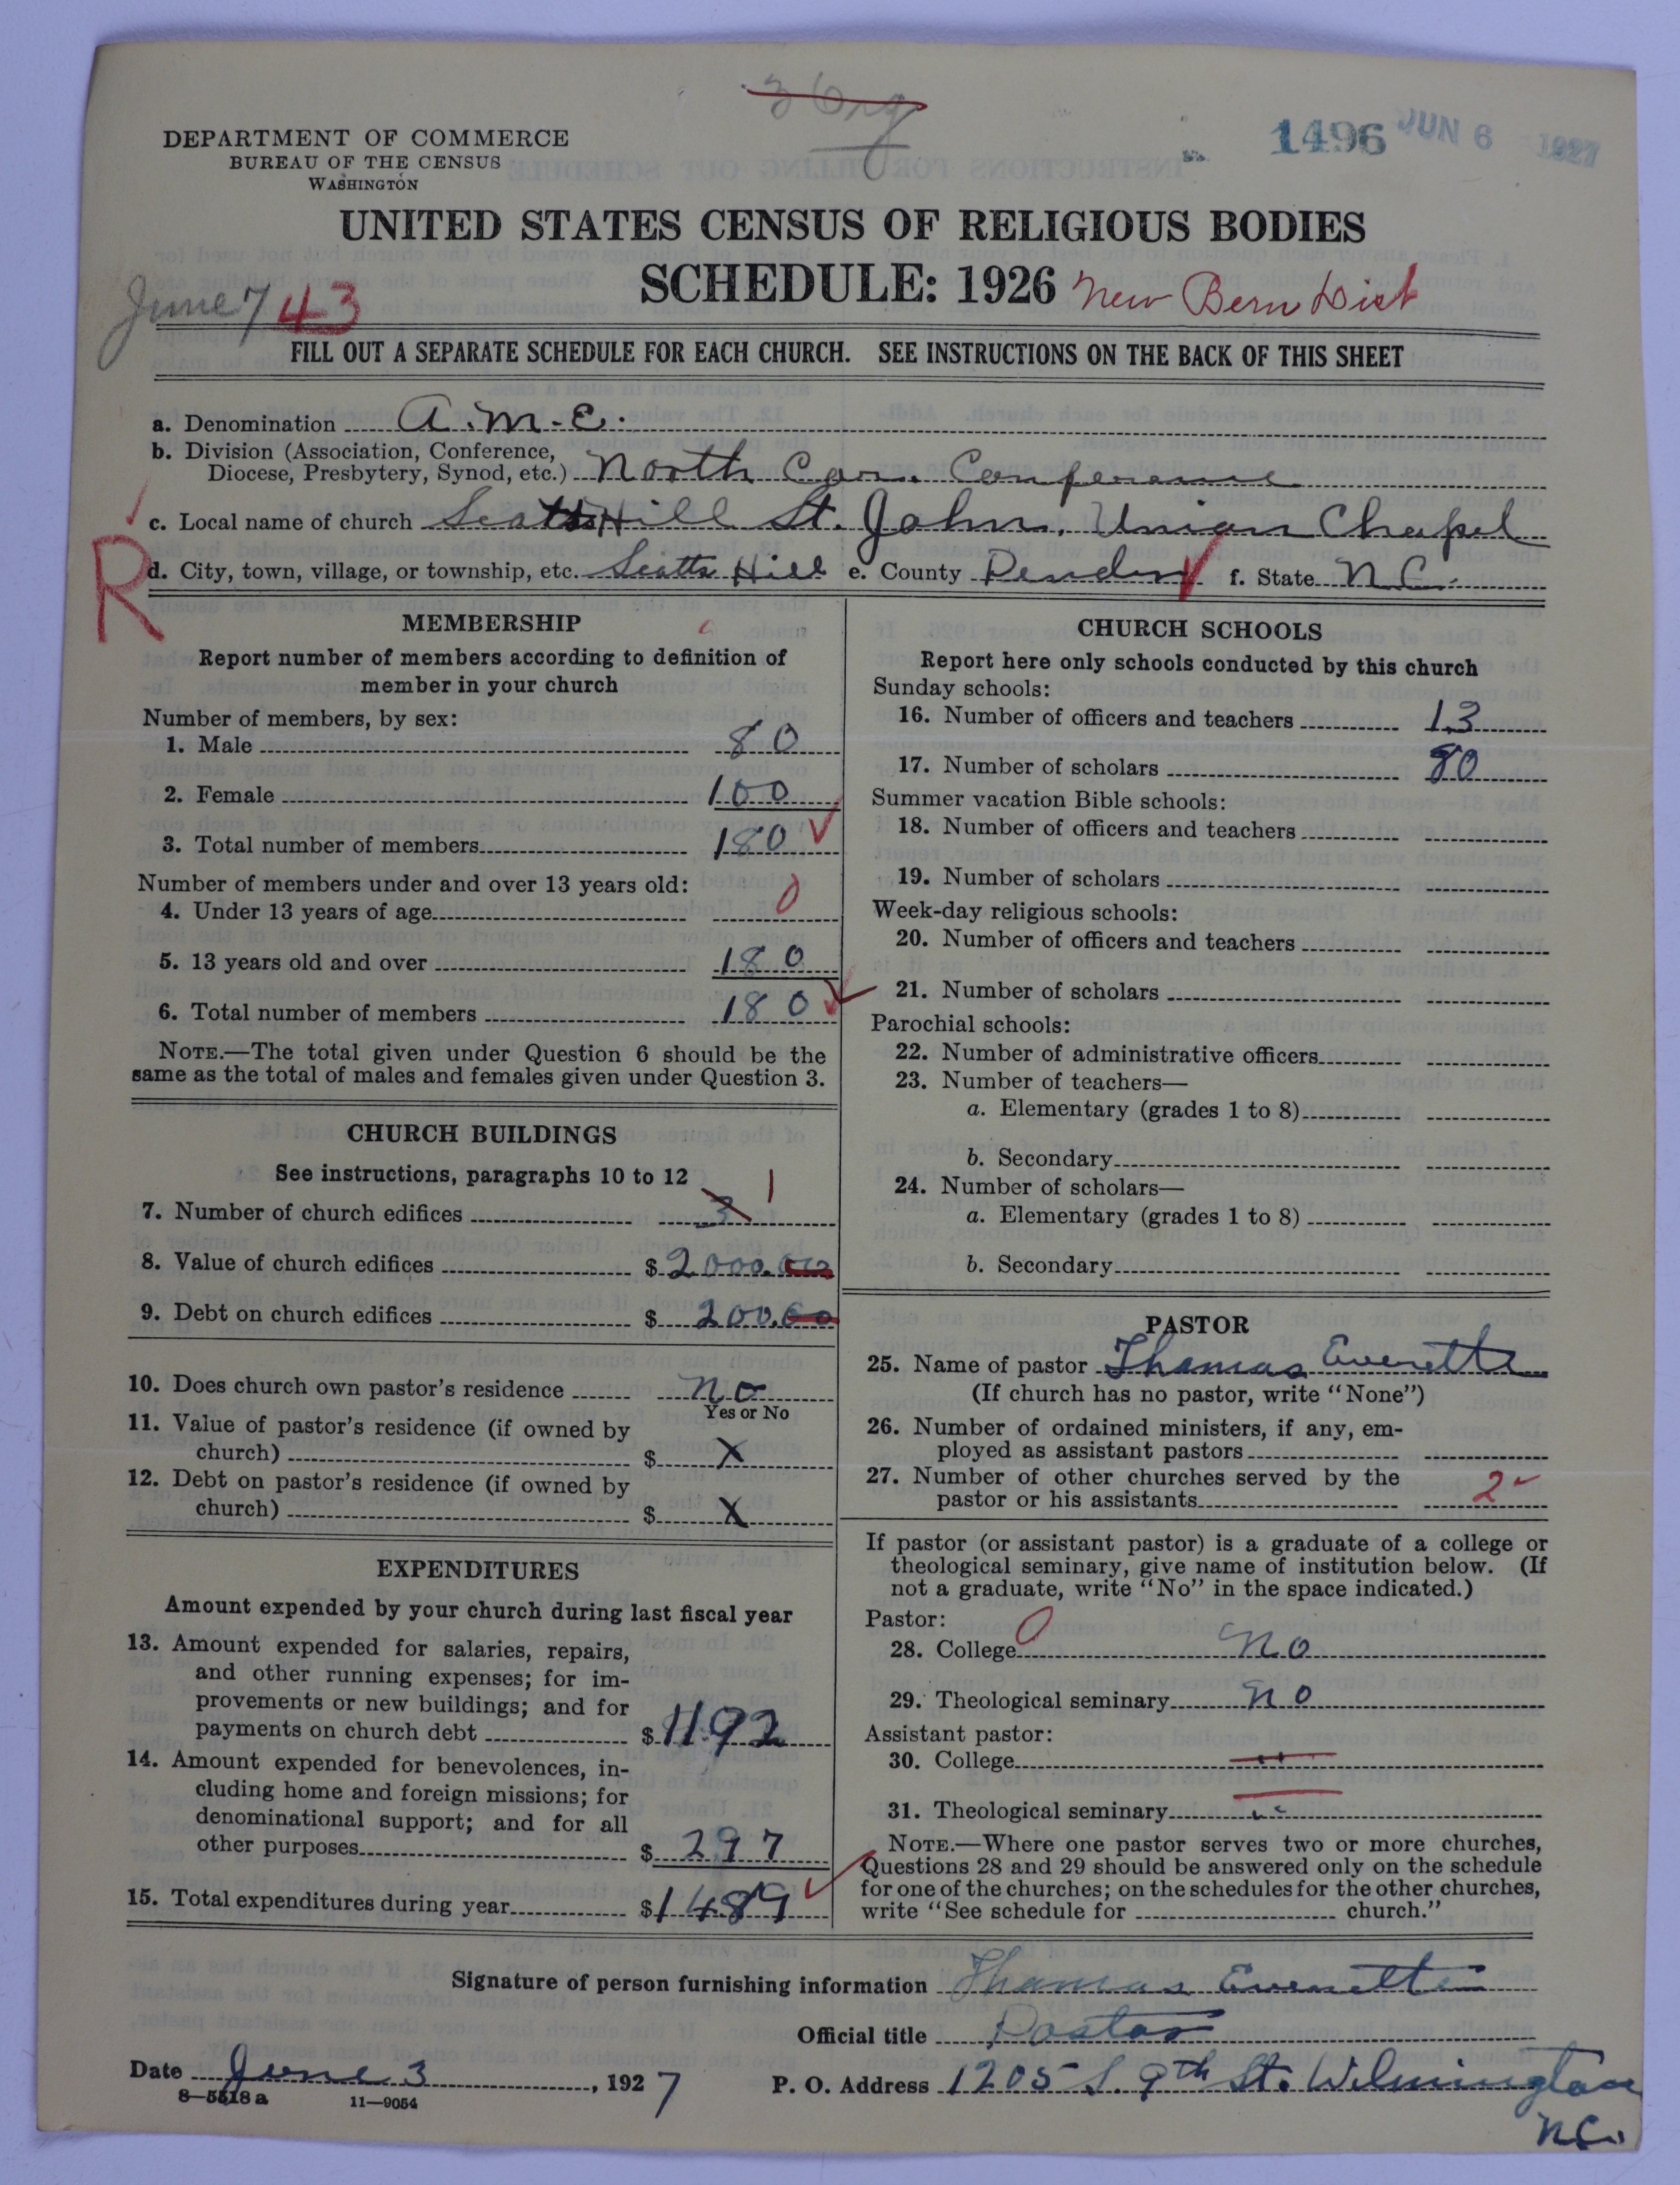 3 Org
1496 JUN 6 1927
DEPARTMENT OF COMMERCE
BUREAU OF THE CENSUS
WASHINGTON
UNITED STATES CENSUS OF RELIGIOUS BODIES
SCHEDULE: 1926 New Bern Dist
June 7 43
FILL OUT A SEPARATE SCHEDULE FOR EACH CHURCH. SEE INSTRUCTIONS ON THE BACK OF THIS SHEET
a. Denomination A.M.E.
b. Division (Association, Conference,
Diocese, Presbytery, Synod, etc.) North Car. Conference
c. Local name of church Scotts Hill St. John, Union Chapel
R
d. City, town, village, or township, etc. Scotts Hill e. County Pender f. State N.C.
MEMBERSHIP
Report number of members according to definition of
member in your church
Number of members, by sex:
1. Male 80
2. Female 100
3. Total number of members 180
Number of members under and over 13 years old:
4. Under 13 years of age 0
5. 13 years old and over 180
6. Total number of members 180
NOTE.—The total given under Question 6 should be the
same as the total of males and females given under Question 3.
CHURCH BUILDINGS
See instructions, paragraphs 10 to 12
7. Number of church edifices 3 1
8. Value of church edifices $ 2000.00
9. Debt on church edifices $ 200.00
10. Does church own pastor's residence no
Yes or No
11. Value of pastor's residence (if owned by
church) $ X
12. Debt on pastor's residence (if owned by
church) $ X
EXPENDITURES
Amount expended by your church during last fiscal year
13. Amount expended for salaries, repairs,
and other running expenses; for im-
provements or new buildings; and for
payments on church debt $ 1192
14. Amount expended for benevolences, in-
cluding home and foreign missions; for
denominational support; and for all
other purposes $ 297
15. Total expenditures during year $ 1489
CHURCH SCHOOLS
Report here only schools conducted by this church
Sunday schools:
16. Number of officers and teachers 13
17. Number of scholars 80
Summer vacation Bible schools:
18. Number of officers and teachers
19. Number of scholars
Week-day religious schools:
20. Number of officers and teachers
21. Number of scholars
Parochial schools:
22. Number of administrative officers
23. Number of teachers—
a. Elementary (grades 1 to 8)
b. Secondary
24. Number of scholars—
a. Elementary (grades 1 to 8)
b. Secondary
PASTOR
25. Name of pastor Thomas Everette
(If church has no pastor, write "None")
26. Number of ordained ministers, if any, em-
ployed as assistant pastors
27. Number of other churches served by the
pastor or his assistants 2
If pastor (or assistant pastor) is a graduate of a college or
theological seminary, give name of institution below. (If
not a graduate, write "No" in the space indicated.)
Pastor:
28. College 0 No
29. Theological seminary no
Assistant pastor:
30. College "
31. Theological seminary "
NOTE.—Where one pastor serves two or more churches,
Questions 28 and 29 should be answered only on the schedule
for one of the churches; on the schedules for the other churches,
write "See schedule for church."
Signature of person furnishing information Thomas Everette
Official title Pastor
Date June 3, 1927
P. O. Address 1205 S. 9th St. Wilmington
N.C.
8—5518 a 11—9054